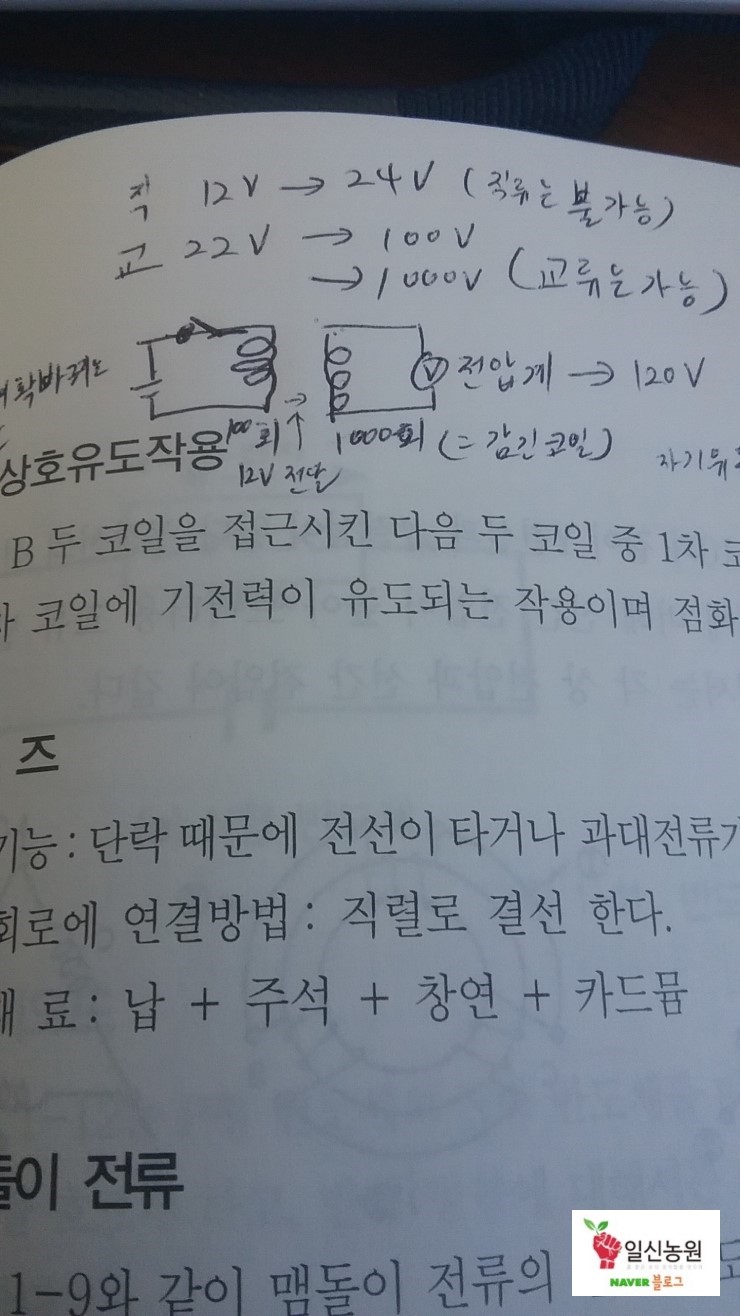 직 12V → 24V (직류는 불가능)
교 22V → 100V
→ 1000V (교류는 가능)
확바뀌는
V 전압계 → 120V
100회 ↑ 1000회 (= 감긴 코일)
12V 전달
자기유
상호유도작용
B 두 코일을 접근시킨 다음 두 코일 중 1차 코
코일에 기전력이 유도되는 작용이며 점화
즈
기능 : 단락 때문에 전선이 타거나 과대전류가
회로에 연결방법 : 직렬로 결선 한다.
재 료 : 납 + 주석 + 창연 + 카드뮴
돌이 전류
1-9와 같이 맴돌이 전류의
일신농원
NAVER 블로그